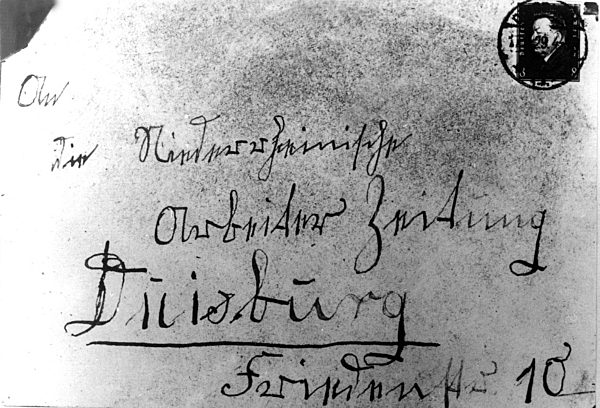 An
die Niederrheinische
Arbeiter Zeitung
Duisburg
Friedenstr 10
8